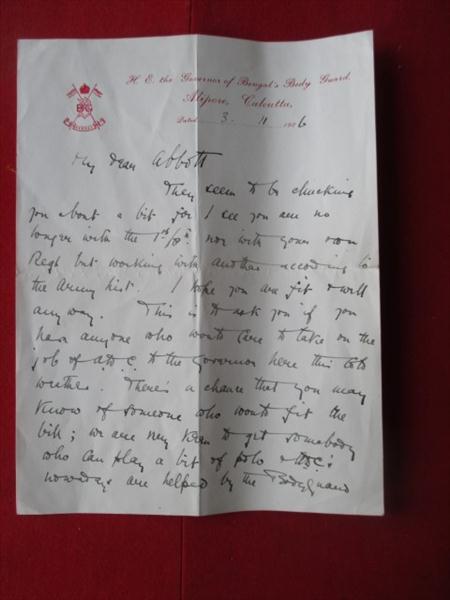 H. E. the Governor of Bengal's Body Guard.
Alipore, Calcutta.
Dated 3. 11 1926
My dear Abbott
They seem to be chucking
you about a bit for I see you are no
longer with the 1st/8th nor with your own
Regt but working with another according to
the Army list. I hope you are fit & well
any way. This is to ask you if you
hear anyone who would care to take on the
job of ADC to the Governor here this cold
weather. There's a chance that you may
know of someone who would fit the
bill; we are very keen to get somebody
who can play a bit of polo & ADC's
nowadays are helped by the BodyGuard